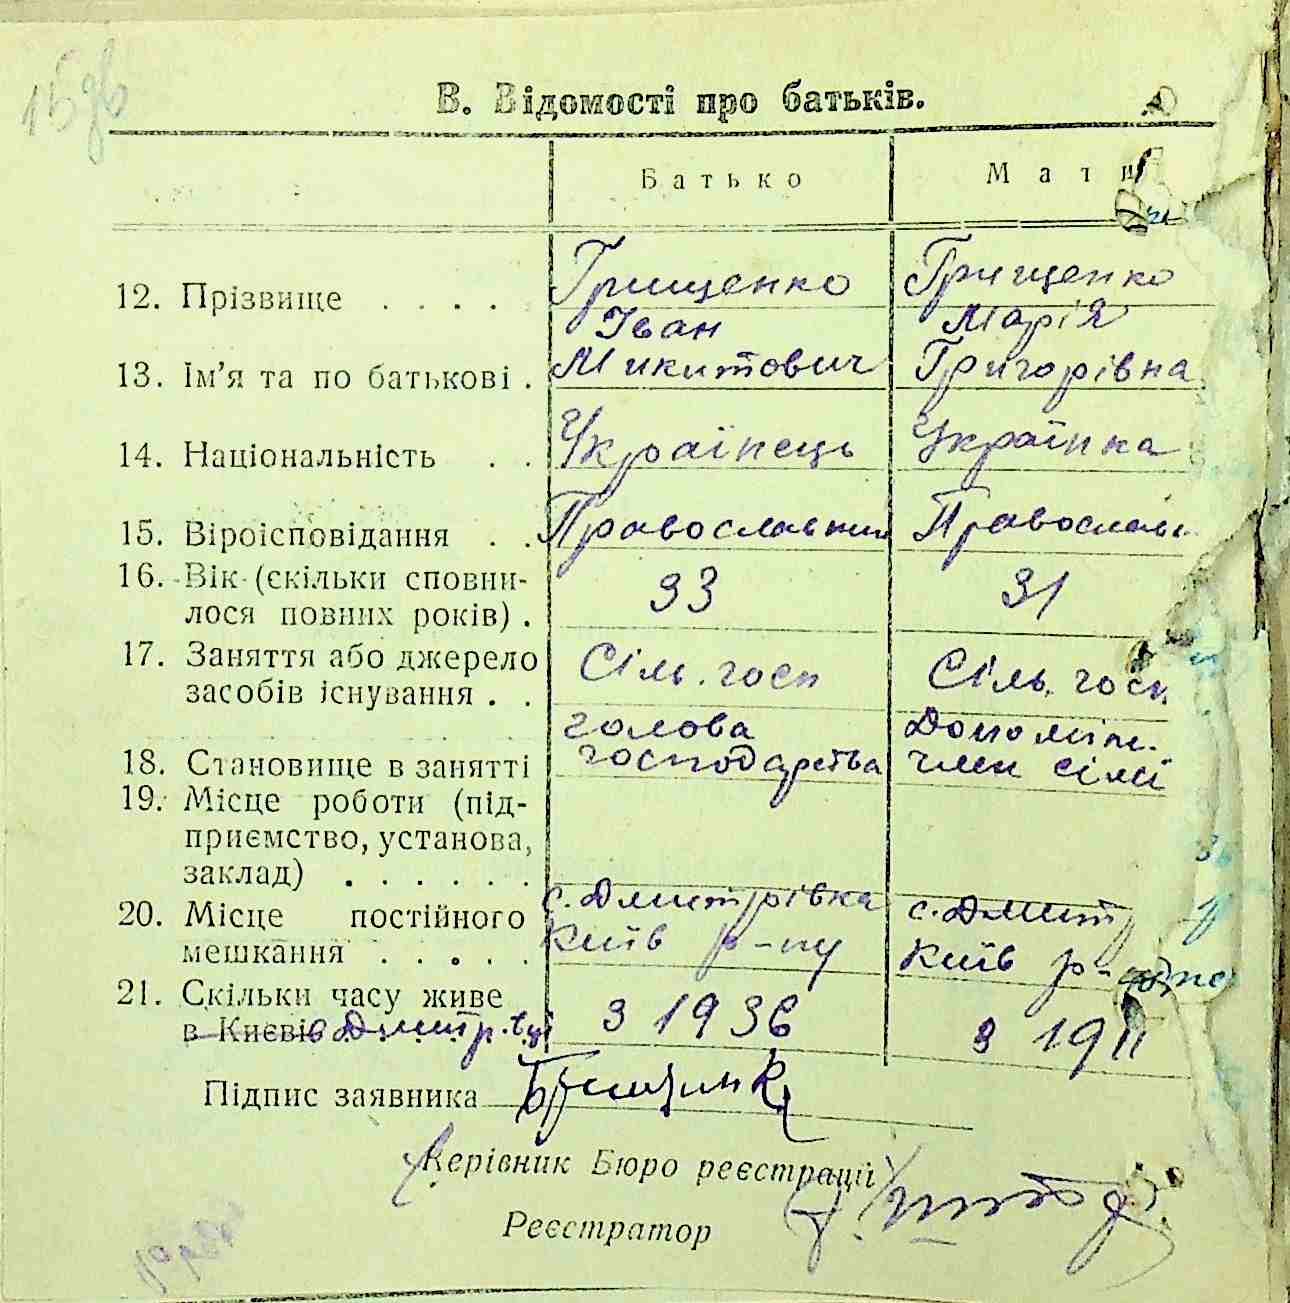 В. Відомості про батьків.
Батько Мати
12. Прізвище . . . . Грищенко Грищенко
Іван Марія
13. Ім'я та по батькові . Микитович Григорівна
14. Національність . . Українець Українка
15. Віроісповідання . . Православний Православн
16. Вік (скільки сповни-
лося повних років) . 33 31
17. Заняття або джерело
засобів існування . . Сіль. госп Сіль. госп
голова Допоміжн.
18. Становище в занятті господарства член сімї
19. Місце роботи (під-
приємство, установа,
заклад) . . . . . .
20. Місце постійного с. Дмитрівка с. Дмитр
мешкання . . . . . Київ р-ну Київ р-
21. Скільки часу живе
в Києві в Дмитр. з 1936 з 1911
Підпис заявника
Керівник Бюро реєстрації
Реєстратор